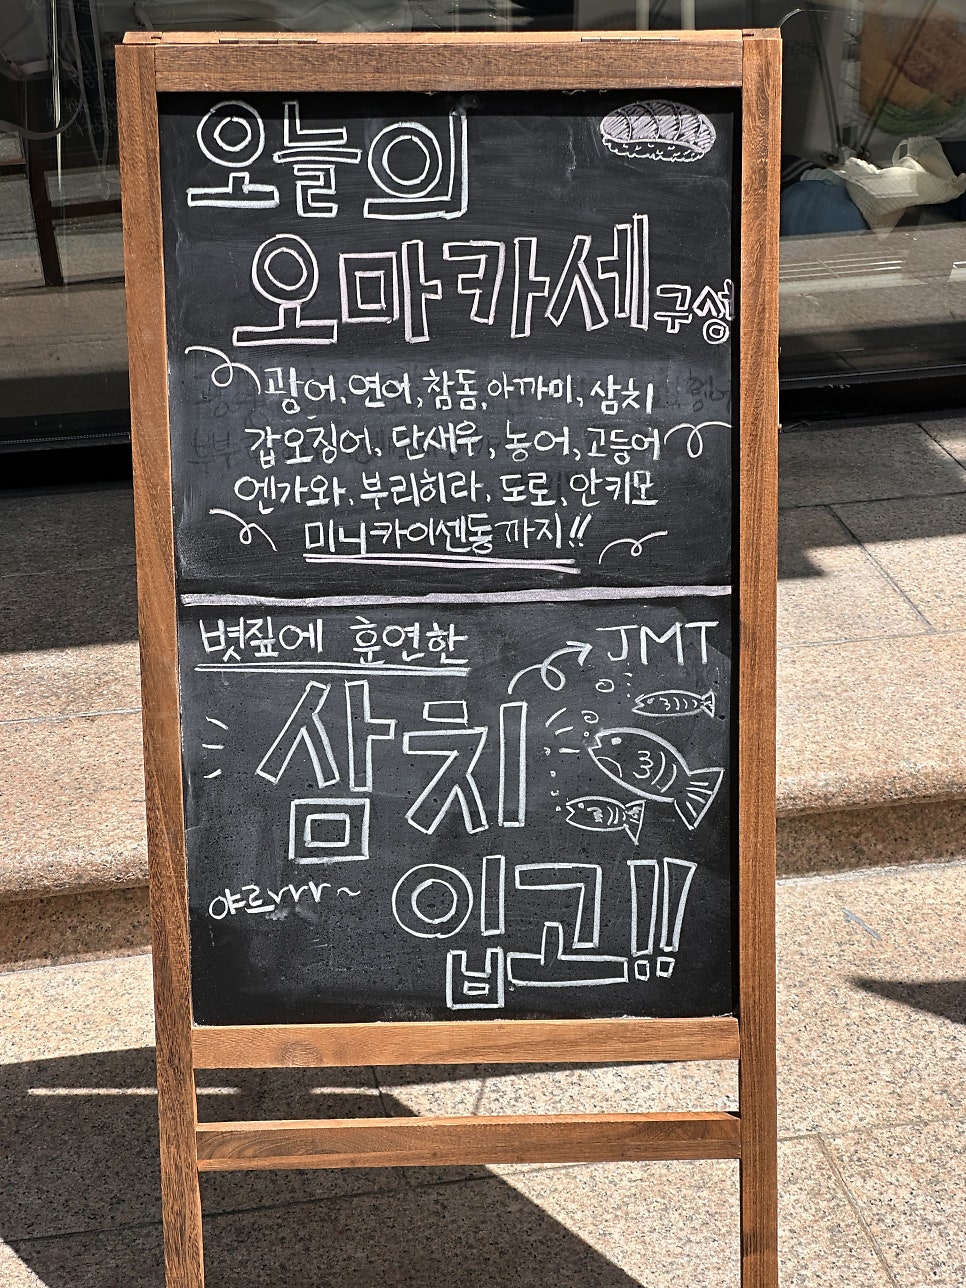 오늘의
오마카세 구성
광어, 연어, 참돔, 아까미, 삼치
갑오징어, 단새우, 농어, 고등어
엔가와, 부리히라, 도로, 안키모
미니카이센동 까지!!
볏짚에 훈연한
JMT
삼치
야르rrrr~
입고!!